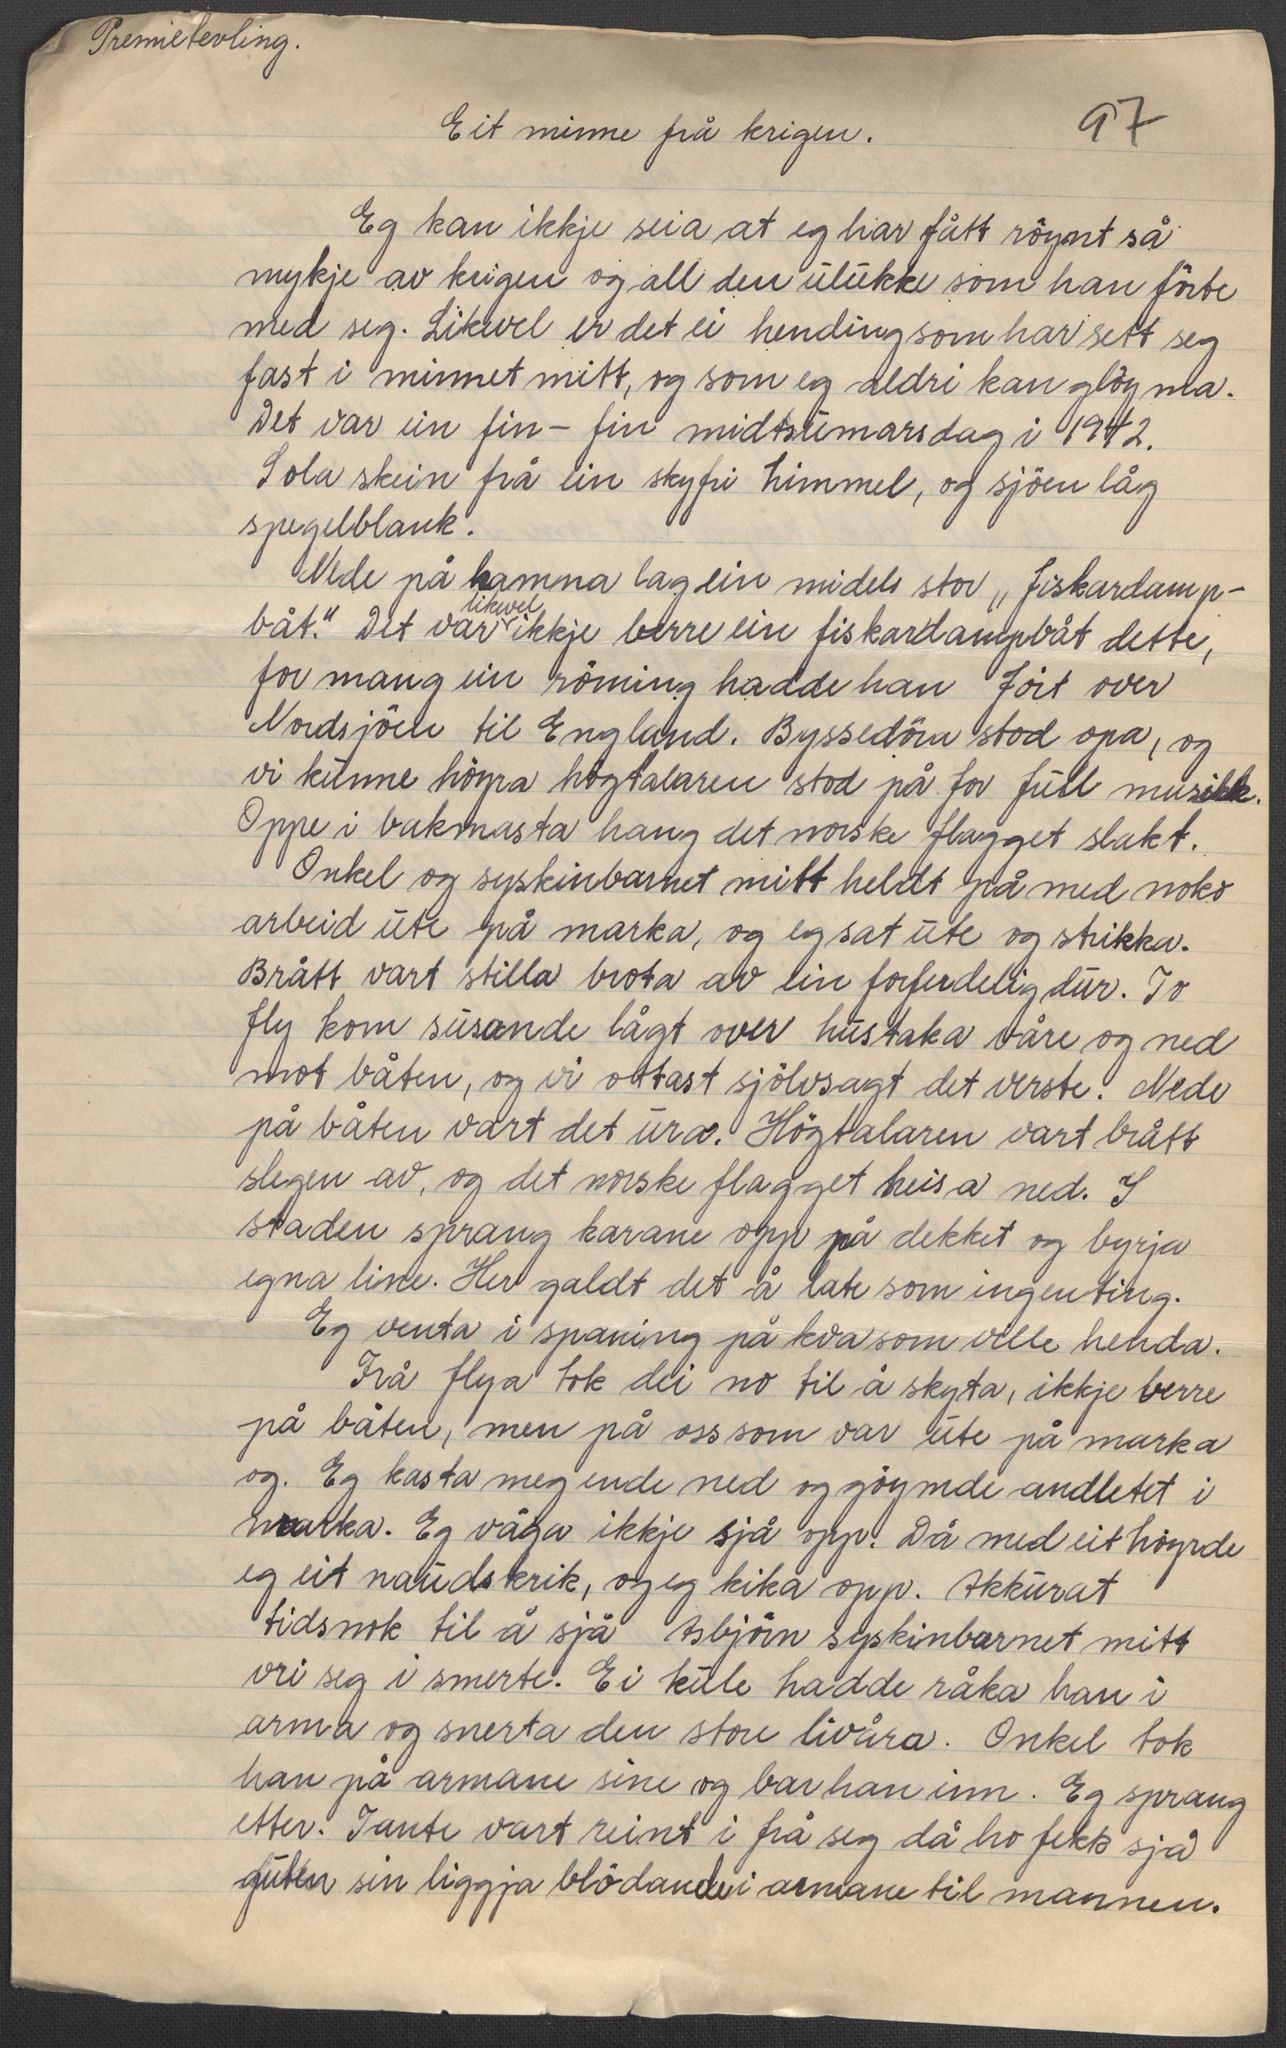 Premietevling.
Eit minne frå krigen.
97
Eg kan ikkje seia at eg har fått röynt så
mykje av krigen og all den ulukke som han förte
med seg. Likevel er det ei hending som har sett seg
fast i minnet mitt, og som eg aldri kan glöyma.
Det var ein fin-fin midtsumarsdag i 1942.
Sola skein frå ein skyfri himmel, og sjöen låg
spegelblank.
Nede på hamna lag ein midels stor „fiskardamp-
båt." Det var likevel ikkje berre ein fiskardampbåt dette,
for mang ein röming hadde han fört over
Nordsjöen til England. Byssedöra stod opa, og
vi kunne höyra högtalaren stod på for full musikk.
Oppe i bakmasta hang det norske flagget slakt.
Onkel og syskinbarnet mitt heldt på med noko
arbeid ute på marka, og eg sat ute og strikka.
Brått vart stilla brota av ein forferdelig dur. To
fly kom susande lågt over hustaka våre og ned
mot båten, og vi ottast sjölvsagt det verste. Nede
på båten vart det ura. Högtalaren vart brått
slegen av, og det norske flagget heisa ned. I
staden sprang karane opp på dekket og byrja
egna line. Her galdt det å late som ingenting.
Eg venta i spaning på kva som ville henda.
Frå flya tok dei no til å skyta, ikkje berre
på båten, men på oss som var ute på marka
og. Eg kasta meg ende ned og göymde andletet i
marka. Eg våga ikkje sjå opp. Då med eit höyrde
eg eit naudskrik, og eg kika opp. Akkurat
tidsnok til å sjå Asbjörn syskinbarnet mitt
vri seg i smerte. Ei kule hadde råka han i
arma og snerta den store livåra. Onkel tok
han på armane sine og bar han inn. Eg sprang
etter. Tante vart reint i frå seg då ho fekk sjå
guten sin liggja blödande i armane til mannen.